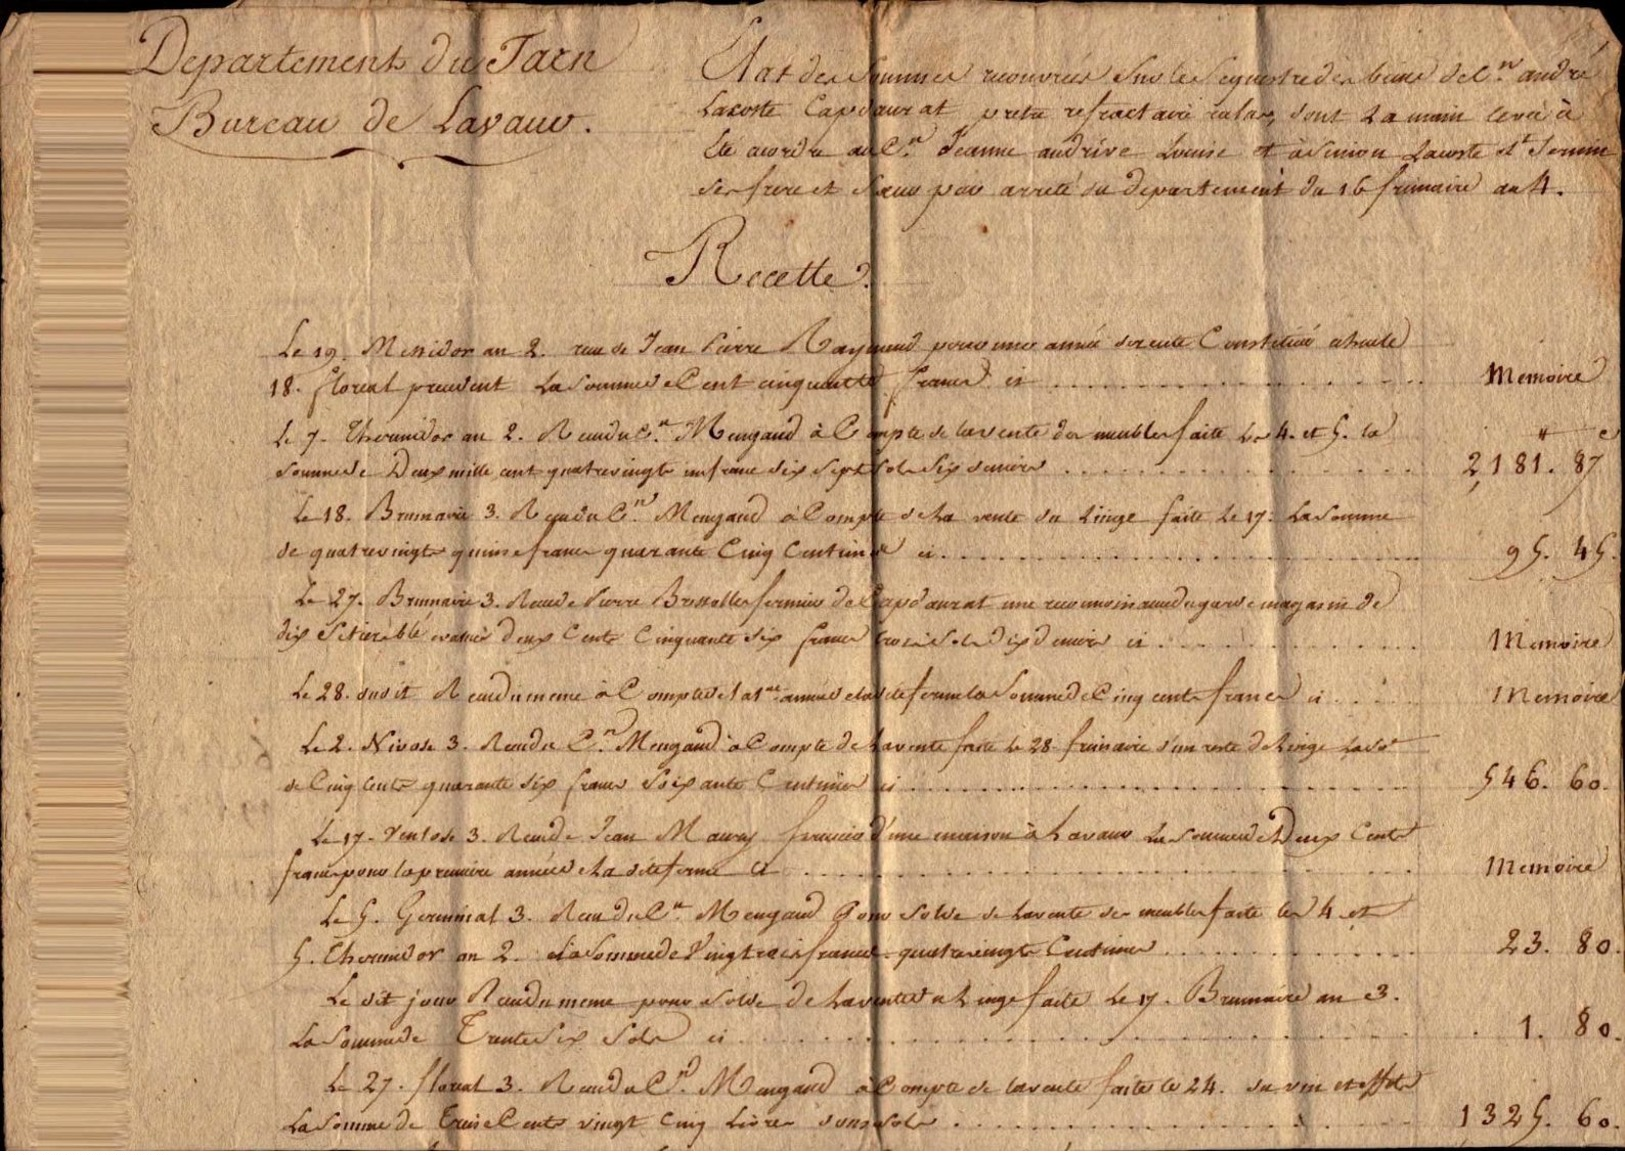 Departement du Tarn
Bureau de Lavaur.
Etat des Sommes recouvrées sur le Sequestre des biens de C.en andré
Lacoste Capdaurat pretre refractaire dont la main levée à
été acordée au C.n Jeanne andrive Louise et à Simon Lacoste St Sernin
ses frere et Sœur par arreté du departement du 16 frimaire an 4.
Recette.
Le 19. Messidor an 2. recu de Jean Pierre Raymond pour une année de rente Constituée echuele
18. floreal precedent la somme de Cent cinquante francs ci Memoire
Le 7. Thermidor an 2. Recu du C.n Mengaud à Compte de la vente des meubles faite les 4. et 5. la
somme de Deux mille cent quatrevingt un franc dix sept sols six deniers 2,181. 87
Le 18. Brumaire 3. Recu du C.n Mengaud à Compte de la vente du linge faite le 17. la Somme
de quatrevingt quinse francs quarante Cinq Centimes ci 95. 45.
Le 27. Brumaire 3. Recu de Pierre fermier de Capdaurat une reconnoissance du garde magasin de
dix Setiers blé evalués deux Cents Cinquante six francs trois sols dix deniers ci Memoire
Le 28. dudit Recu du meme à Compte de la 1re année de la dite ferme la Somme de Cinq cents francs ci Memoire
Le 2. Nivose 3. Recu du C.n Mengaud à Compte de la vente faite le 28 frimaire d'un reste de linge
de Cinq Cents quarante six francs soixante Centimes ci 546. 60.
Le 17. Ventose 3. Recu de Jean Maury fermier d'une maison à Lavaur la somme de Deux Cents
francs pour la premiere année de la dite ferme ci Memoire
Le 5. Germinal 3. Recu du C.n Mengaud Pour solde de la vente des meubles faite les 4 et
5. Thermidor an 2. la Somme de Vingt trois francs quatrevingts Centimes 23. 80.
Le dit jour Recu du meme pour solde de la vente du Linge faite le 17. Brumaire an 3.
La Somme de Trente Six Sols ci 1. 80.
Le 27. floreal 3. Recu du C.n Mengaud à Compte de la vente faite le 24. du vin et effets
La Somme de Treise Cents vingt Cinq Livres sols 1325. 60.